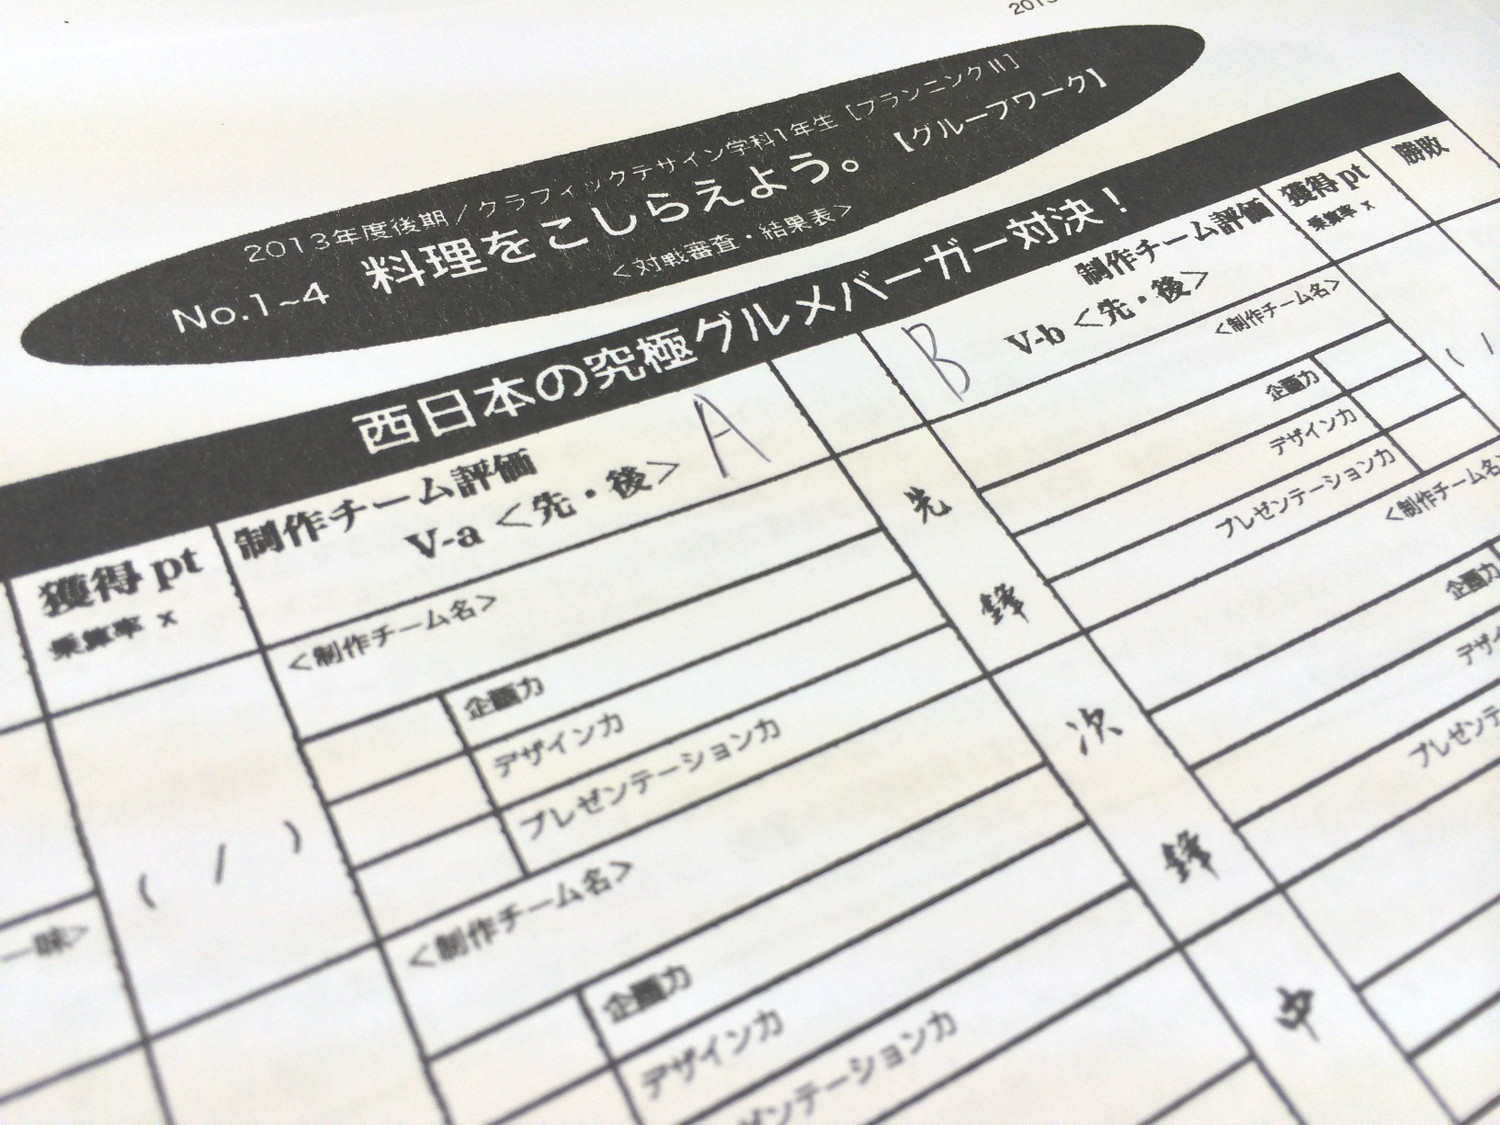 2013
2013年度後期／グラフィックデザイン学科1年生［プランニングII］
No.1~4 料理をこしらえよう。【グループワーク】
＜対戦審査・結果表＞
西日本の究極グルメバーガー対決！
獲得pt
乗算率 x
制作チーム評価
V-a＜先・後＞
A
B
制作チーム評価
V-b＜先・後＞
獲得pt
乗算率 x
勝敗
＜制作チーム名＞
企画力
デザイン力
プレゼンテーション力
先鋒
＜制作チーム名＞
企画力
デザイン力
プレゼンテーション力
( / )
( /
＜制作チーム名＞
企画力
デザイン力
ゼンテーション力
次鋒
＜制作チーム名
企画力
デザイ
プレゼンテ
一味＞
中